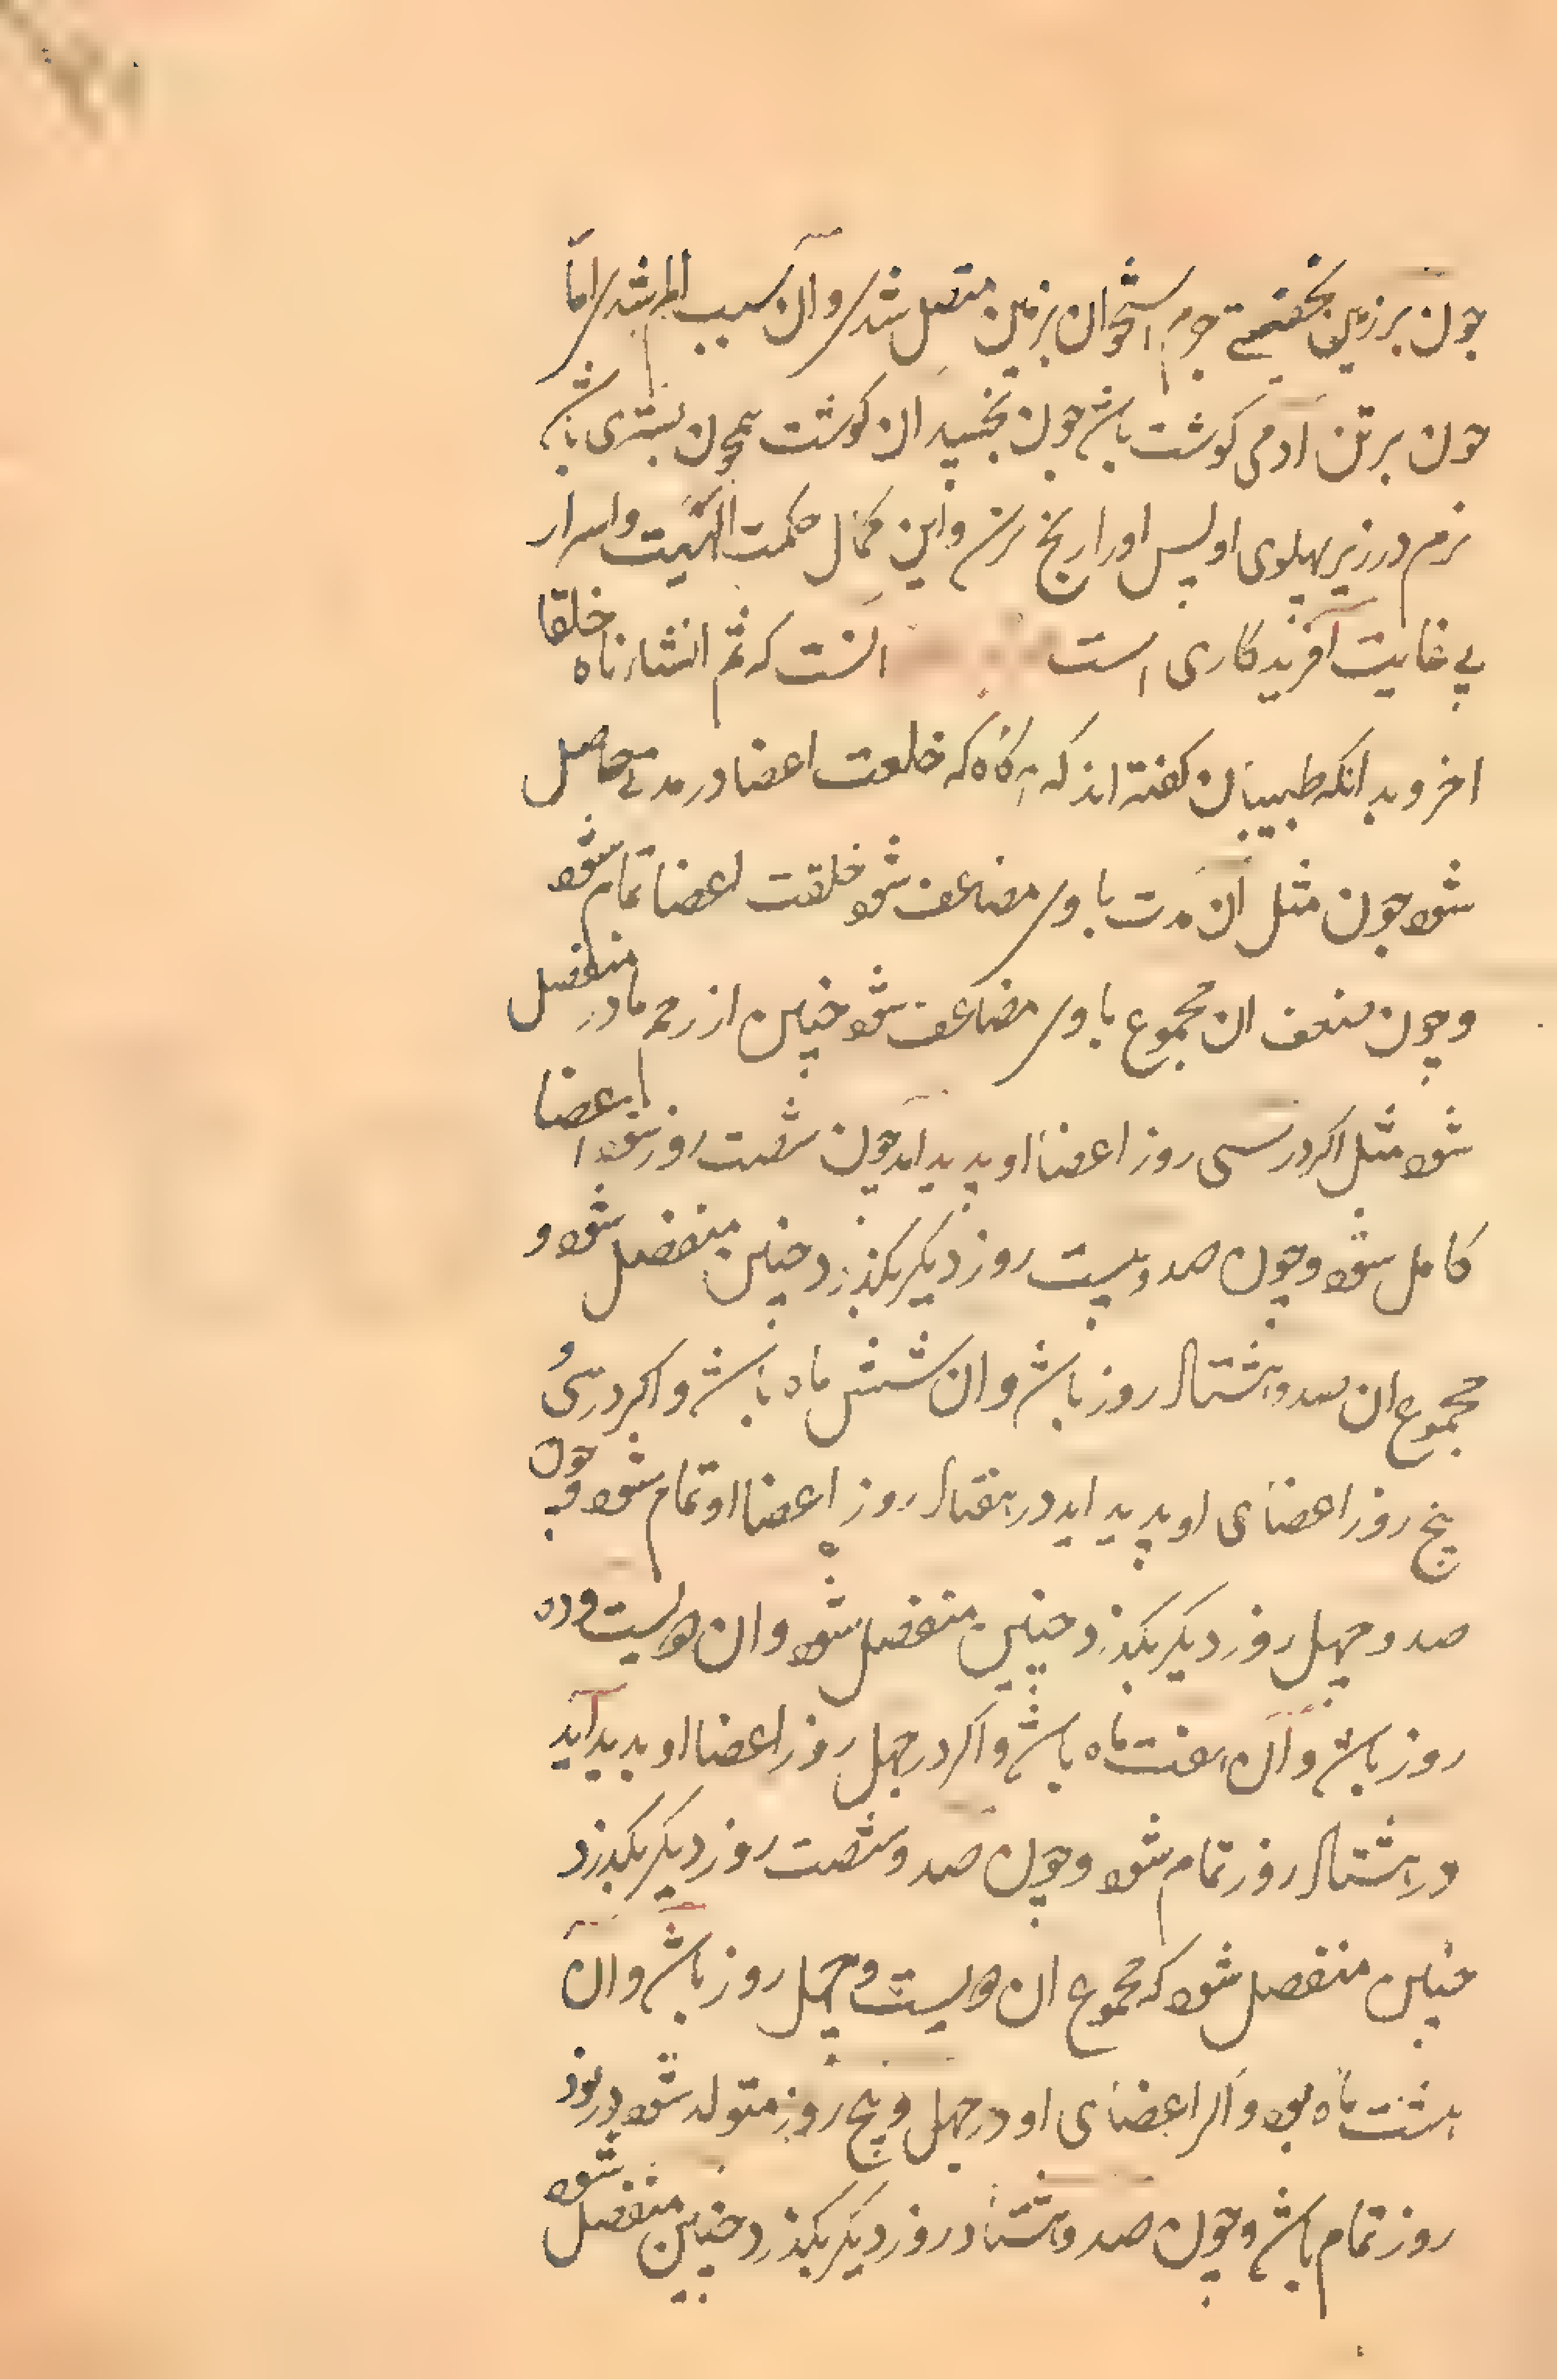 چون بر زمین بخفتی جرم استخوان بزمین متصل شدی و آن سبب الم شدی اما
چون بر تن آدمی کوشت باشد چون بخسپد ان کوشت همچون بستری باشد
نرم در زیر پهلوی او پس اورا رنج نرسد و این کمال حکمت الهیت و اسرار
بی غایت آفریدکاری است انست که ثم انشاءناه خلقا
اخر و بدانکه طبیبان کفته اند که هرکاه که خلعت اعضا در مدتی حاصل
شود چون مثل آن مدت با وی مضاعف شود خلقت اعضا تمام شود
و چون ضعف ان مجموع با وی مضاعف شود جنین از رحم مادر منفصل
شود مثل اکر در سی روز اعضا او پدید اید چون شصت روز شود اعضا
کامل شود و چون صد و بیست روز دیکر بکذرد جنین منفصل شود و
مجموع ان صد و هشتاد روز باشد و ان شش ماه باشد و اکر در سی و
پنج روز اعضای او پدید اید در هفتاد روز اعضا او تمام شود و چون
صد و چهل روز دیکر بکذرد جنین منفصل شود و ان دویست و ده
روز باشد و آن هفت ماه باشد و اکر در چهل روز اعضا او پدید آید
در هشتاد روز تمام شود و چون صد و شصت روز دیکر بکذرد
جنین منفصل شود که مجموع ان دویست و چهل روز باشد و ان
هشت ماه بود و اکر اعضای او در چهل و پنج روز متولد شود در نود
روز تمام باشد و چون صد و هشتاد روز دیکر بکذرد جنین منفصل شود